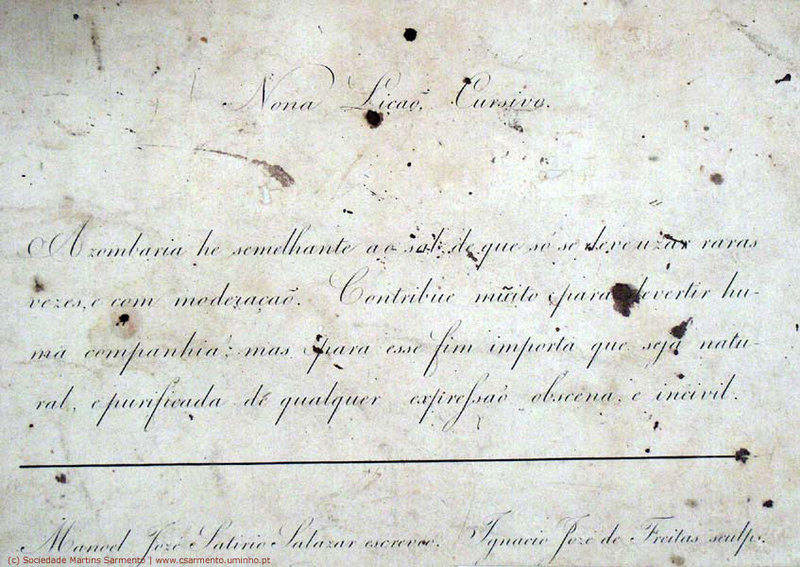 Nona Liçaõ, Cursivo.
A zombaria he semelhante ao sal: de que só se deve uzar raras
vezes, e com moderaçaõ. Contribue mũito para devertir hu-
ma companhia; mas para esse fim importa que seja natu-
ral, e purificada de qualquer expressaõ obscena, e incivil.
Manoel Jozé Satirio Salazar escreveo. Ignacio Jozé de Freitas sculp.
(c) Sociedade Martins Sarmento | www.csarmento.uminho.pt